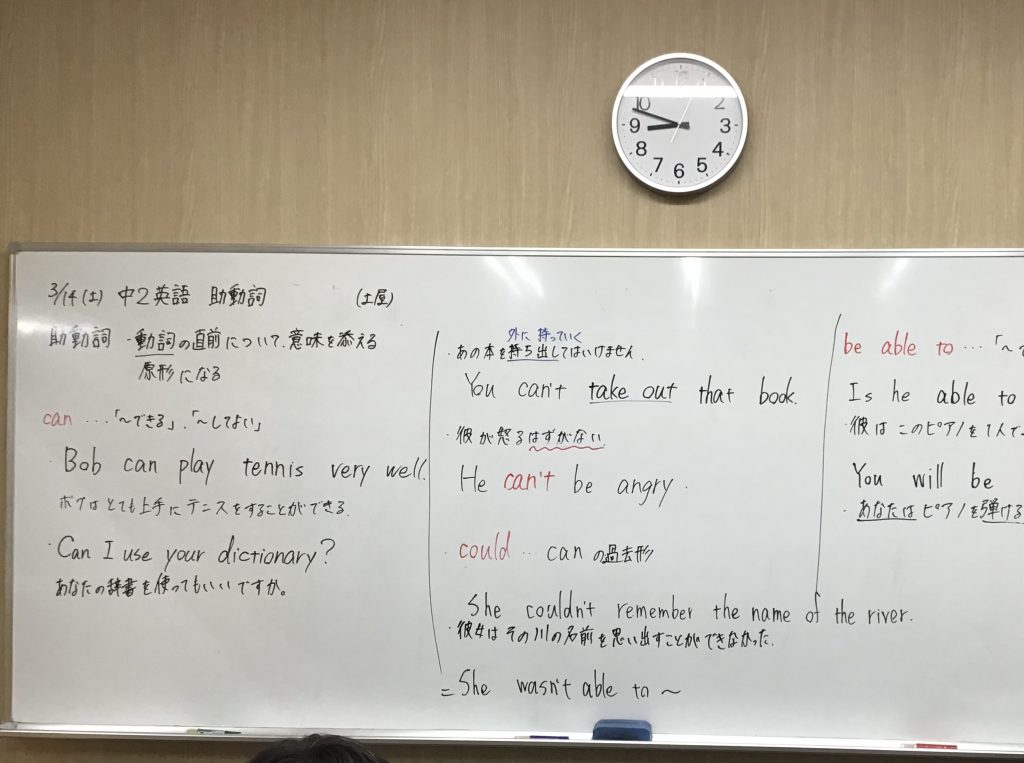 10 2
9 3
8 4
7 6 5
3/14(土) 中2英語 助動詞 (土屋)
助動詞 ・動詞の直前について、意味を添える
原形になる
can …「〜できる」.「〜してよい」
・Bob can play tennis very well.
ボブはとても上手にテニスをすることができる.
・Can I use your dictionary?
あなたの辞書を使ってもいいですか。
外に 持っていく
・あの本を持ち出してはいけません.
You can't take out that book.
・彼が怒るはずがない.
He can't be angry.
・could … can の過去形
She couldn't remember the name of the river.
・彼女はその川の名前を思い出すことができなかった.
= She wasn't able to 〜
be able to …「〜
Is he able to
・彼はこのピアノを1人で
You will be
・あなたはピアノを弾ける